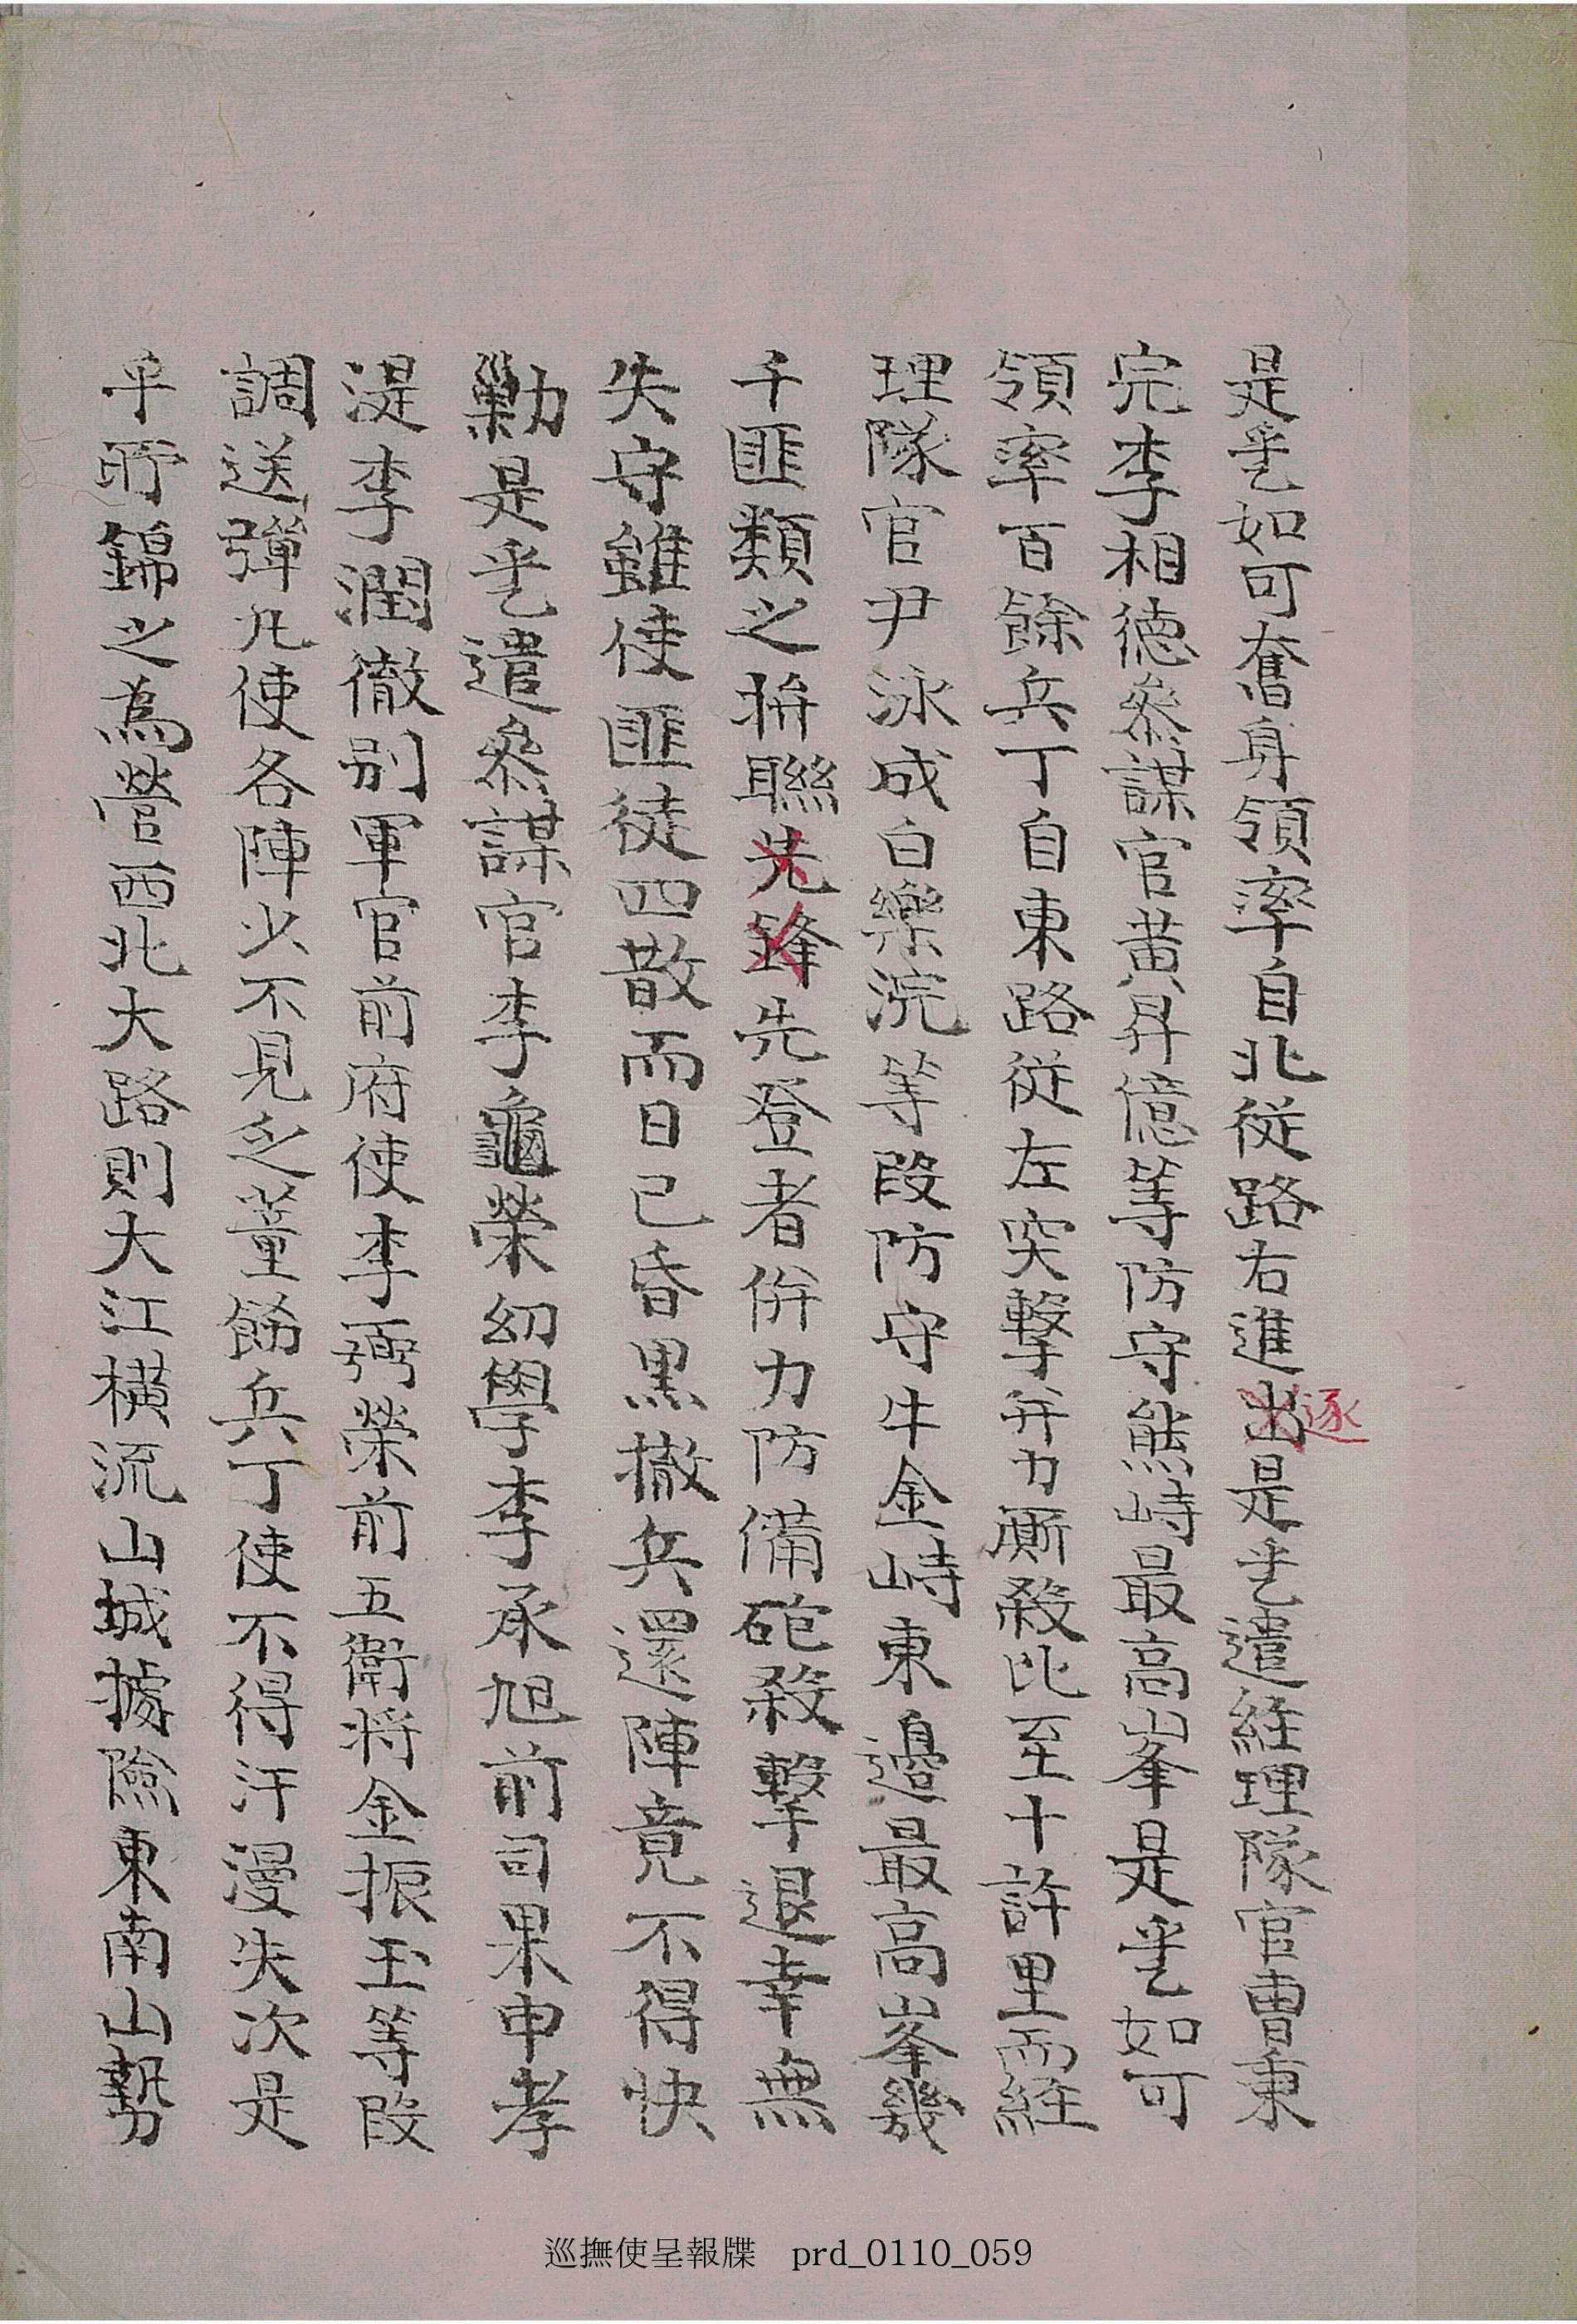 是乎乙如可奮身領率自北從路右進出逐是乎乙遣經理隊官曺秉
完李相德叅謀官黃昇億等防守熊峙最高峯是乎乙如可
領率百餘兵丁自東路從左突擊幷力厮殺比至十許里而經
理隊官尹泳成白樂浣等段防守牛金峙東邊最高峯幾
千匪類之拚聯先鋒先登者倂力防備砲殺擊退幸無
失守雖使匪徒四散而日已昏黑撤兵還陣竟不得快
勦是乎乙遣叅謀官李龜榮幼學李承旭前司果申孝
湜李潤徹別軍官前府使李璚榮前五衛將金振玉等段
調送彈丸使各陣少不見乏董飭兵丁使不得汗漫失次是
乎所錦之爲營西北大路則大江橫流山城據險東南山勢
巡撫使呈報牒 prd_0110_059